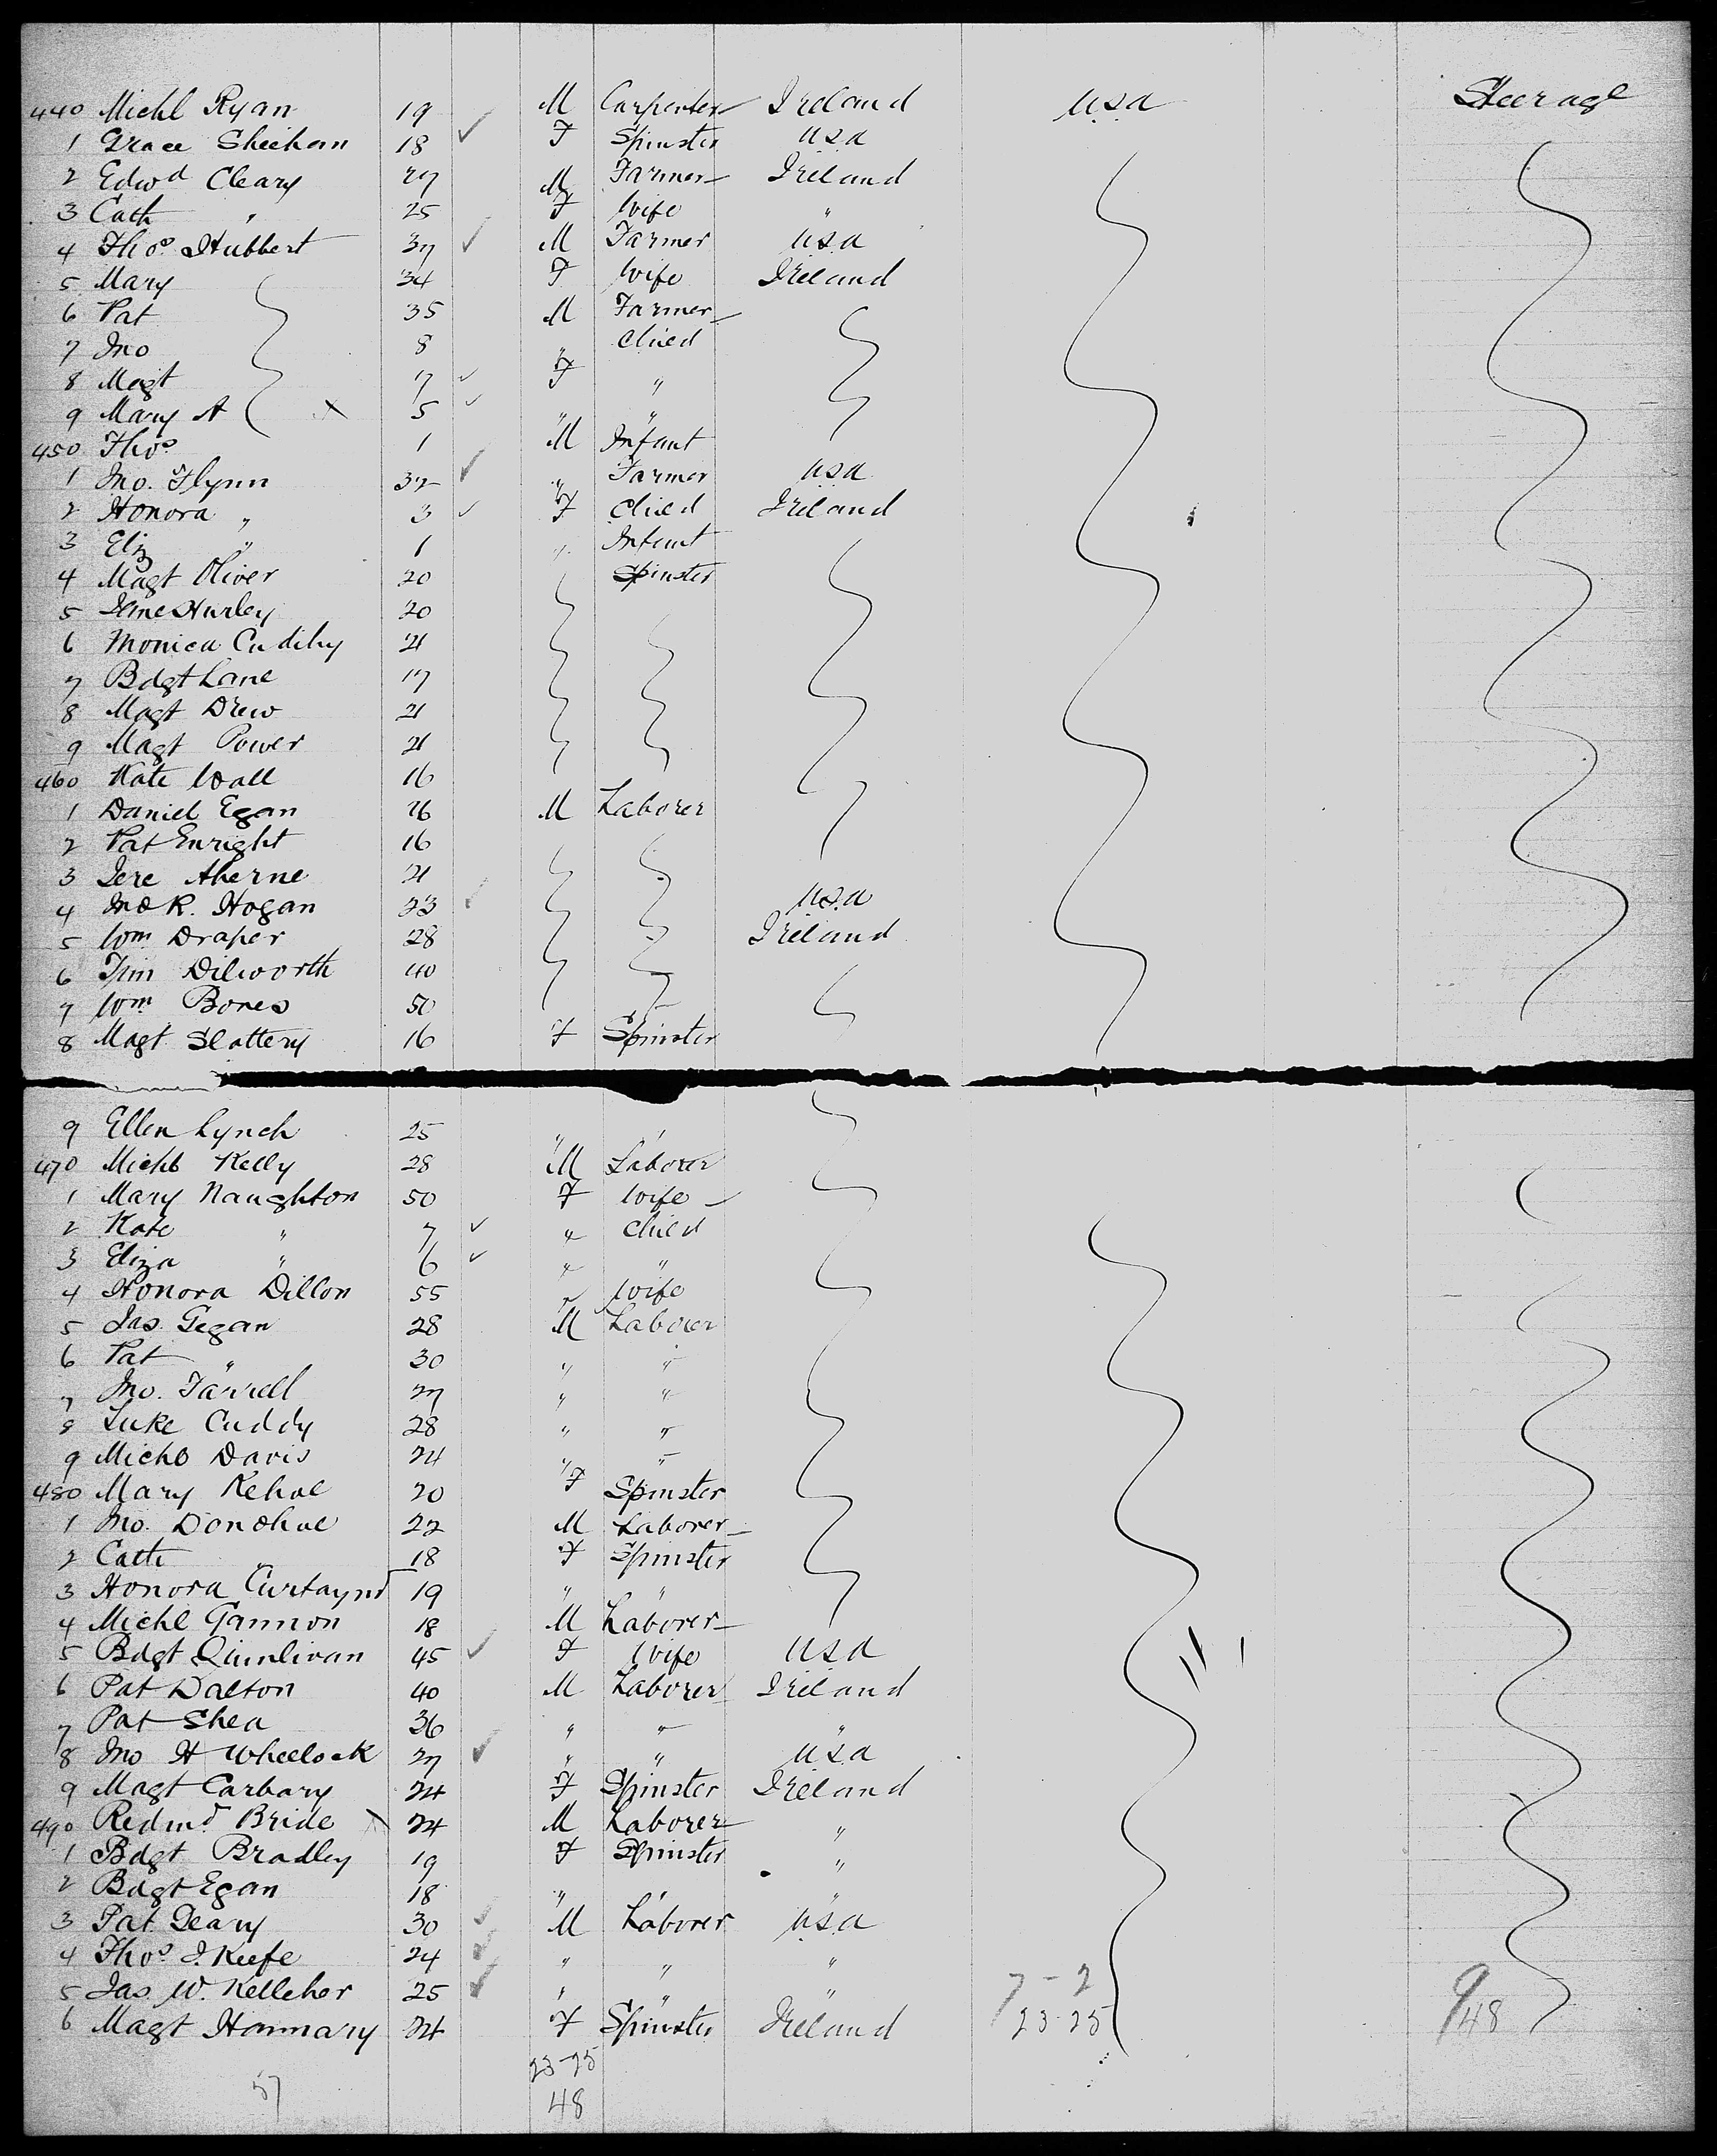 440 Michl Ryan 19 M Carpenter Ireland U.S.A Steerage
1 Grace Sheehan 18 F Spinster U.S.A
2 Edwd Cleary 27 M Farmer Ireland
3 Cath " 25 F Wife "
4 Thos Hubbert 37 M Farmer U.S.A
5 Mary 34 F Wife Ireland
6 Pat 35 M Farmer
7 Jno 8 " Child
8 Magt 7 F "
9 Mary A 5 " "
450 Thos 1 M Infant
1 Jno. Flynn 32 " Farmer U.S.A
2 Honora " 3 F Child Ireland
3 Eliz " 1 " Infant
4 Magt Oliver 20 Spinster
5 Jane Hurley 20
6 Monica Cudihy 21
7 Bdgt Lane 17
8 Magt Drew 21
9 Magt Power 21
460 Kate Wall 16
1 Daniel Egan 26 M Laborer
2 Pat Enright 16
3 Jere Aherne 21
4 Jno R. Hogan 23 U.S.A
5 Wm Draper 28 Ireland
6 Tim Dilworth 40
7 Wm Bones 50
8 Magt Slattery 16 F Spinster
9 Ellen Lynch 25 " "
470 Michl Kelly 28 M Laborer
1 Mary Naughton 50 F Wife
2 Kate " 7 " Child
3 Eliza " 6 " "
4 Honora Dillon 55 " Wife
5 Jas. Gegan 28 M Laborer
6 Pat " 30 " "
7 Jno. Farrell 27 " "
8 Luke Cuddy 28 " "
9 Michl Davis 24 " "
480 Mary Kehoe 20 F Spinster
1 Jno. Donohue 22 M Laborer
2 Cath " 18 F Spinster
3 Honora Curtaynd 19 " "
4 Michl Gannon 18 M Laborer
5 Bdgt Quinlivan 45 F Wife U.S.A
6 Pat Dalton 40 M Laborer Ireland
7 Pat Shea 36 " " "
8 Jno H Wheelock 27 " " U.S.A
9 Magt Carbary 24 F Spinster Ireland
490 Redmd Bride 24 M Laborer "
1 Bdgt Bradley 19 F Spinster "
2 Bdgt Egan 18 " " "
3 Pat Geary 30 M Laborer U.S.A
4 Thos J. Keefe 24 " " "
5 Jas. W. Kelleher 25 " " " 7-2 9
6 Magt Hanmary 24 F Spinster Ireland 23-25 48
23-25
57 48